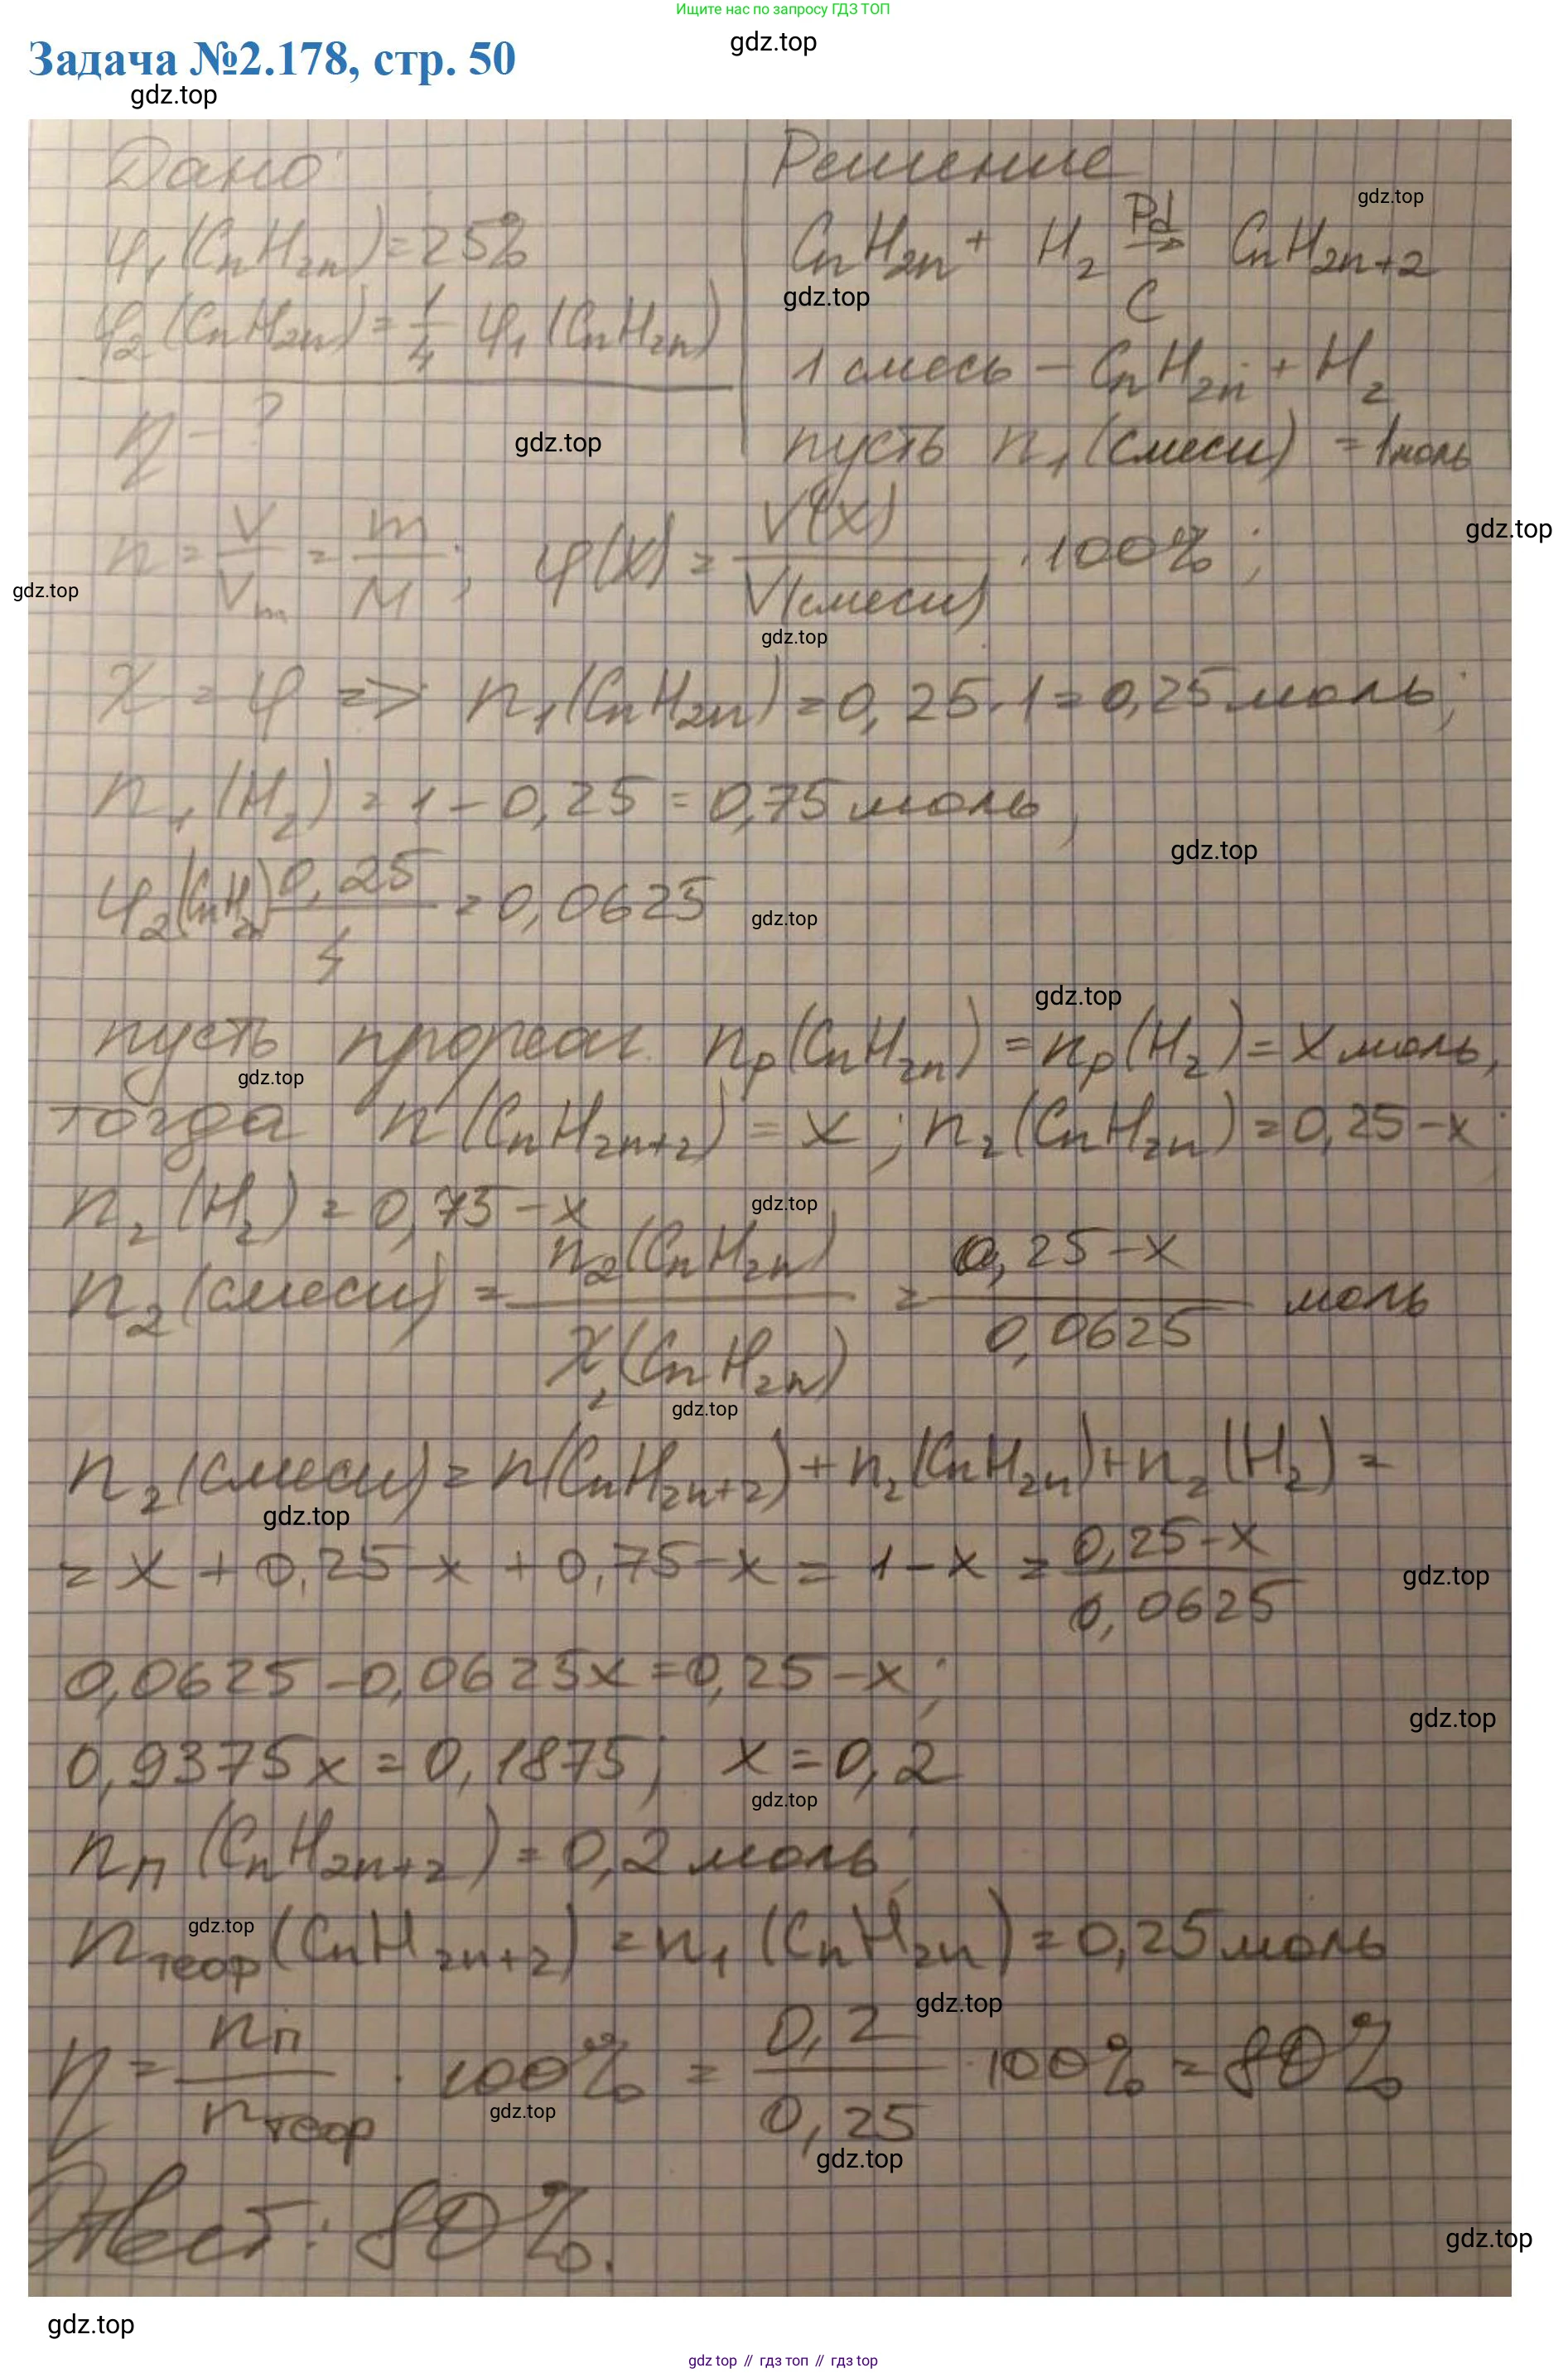 Ищите нас по запросу ГДЗ ТОП
gdz.top
Задача №2.178, стр. 50
gdz.top
Дано:
φ₁(CnH2n)=25%
φ₂(CnH2n)=1/4 φ₁(CnH2n)
η-?
Решение
gdz.top
CnH2n + H₂ Pd→C CnH2n+2
gdz.top
1 смесь - CnH2n + H₂
пусть n₁(смеси) = 1моль
gdz.top
gdz.top
n = V/Vm = m/M; φ(X) = V(X)/V(смеси) · 100%;
gdz.top
gdz.top
χ = φ => n₁(CnH2n) = 0,25·1 = 0,25 моль;
n₁(H₂) = 1 - 0,25 = 0,75 моль;
gdz.top
φ₂(CnH2n) 0,25/4 = 0,0625
gdz.top
gdz.top
пусть прореаг. nр(CnH2n) = nр(H₂) = x моль,
gdz.top
тогда n(CnH2n+2) = x; n₂(CnH2n) = 0,25-x;
n₂(H₂) = 0,75-x
gdz.top
n₂(смеси) = n₂(CnH2n)/χ₂(CnH2n) = 0,25-x/0,0625 моль
gdz.top
n₂(смеси) = n(CnH2n+2) + n₂(CnH2n) + n₂(H₂) =
gdz.top
= x + 0,25-x + 0,75-x = 1-x = 0,25-x/0,0625
gdz.top
0,0625 - 0,0625x = 0,25-x;
gdz.top
0,9375x = 0,1875; x = 0,2
gdz.top
nп(CnH2n+2) = 0,2 моль;
gdz.top
nтеор(CnH2n+2) = n₁(CnH2n) = 0,25 моль
gdz.top
η = nп/nтеор · 100% = 0,2/0,25 · 100% = 80%
gdz.top
gdz.top
Ответ: 80%.
gdz.top
gdz.top
gdz top // гдз топ // гдз top